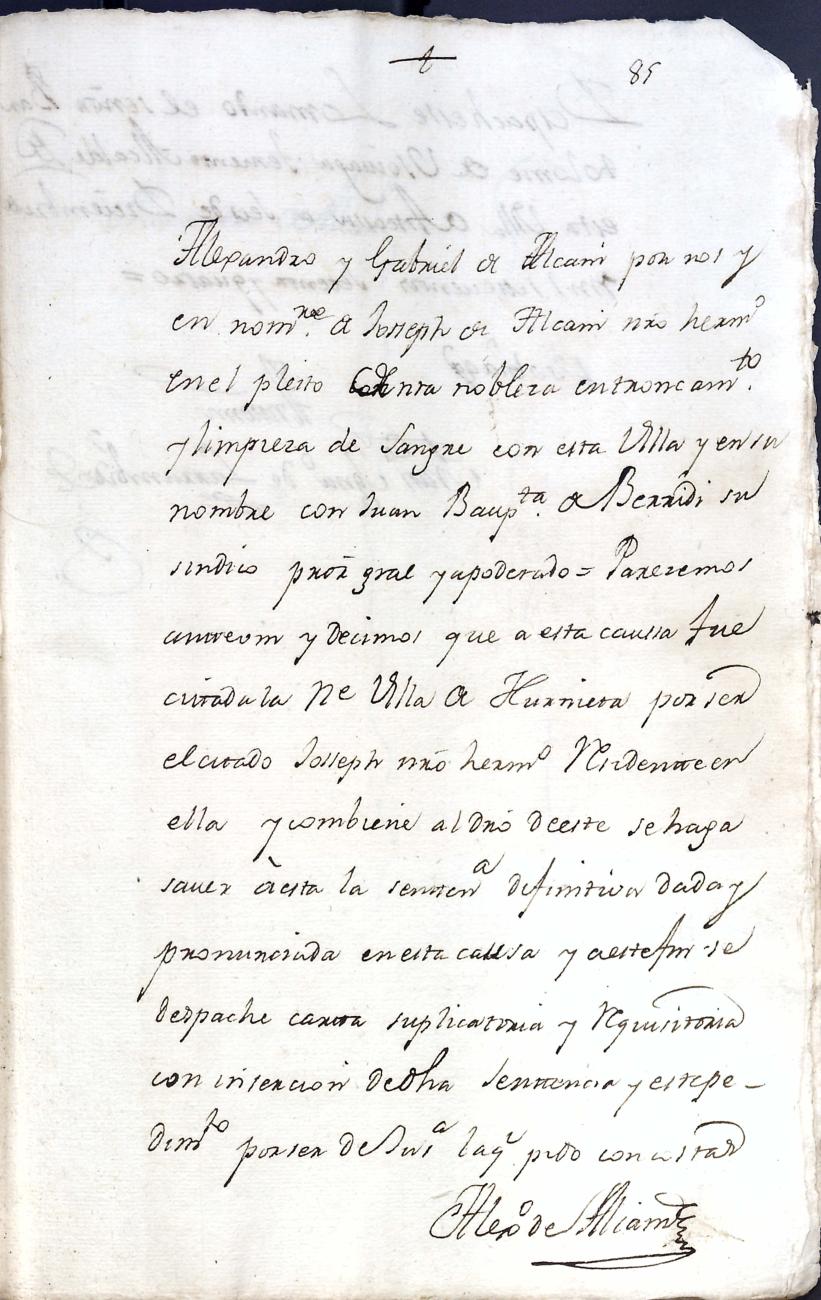 85
Alexandro y Gabriel de Alcain por nos y
en nom.re de Joseph de Alcain nro hermo
en el pleito sobre nra nobleza entroncamto.
y limpieza de Sangre con esta Villa y en su
nombre con Juan Baupta. de Berridi su
sindico pror gral y apoderado = Parezemos
ante vm y Decimos que a esta caussa fue
citada la Ne Villa de Hurnieta por ser
el citado Joseph nro hermo Residente en
ella y combiene al dro de este se haga
saver â esta la sentena definitiva dada y
pronunciada en esta causa y a este fin se
despache carta suplicatoria y Requisitoria
con insercion de dha Sentencia y este pe-
dimto por ser de Jusa la q pido con costas
Alexo de Alcain